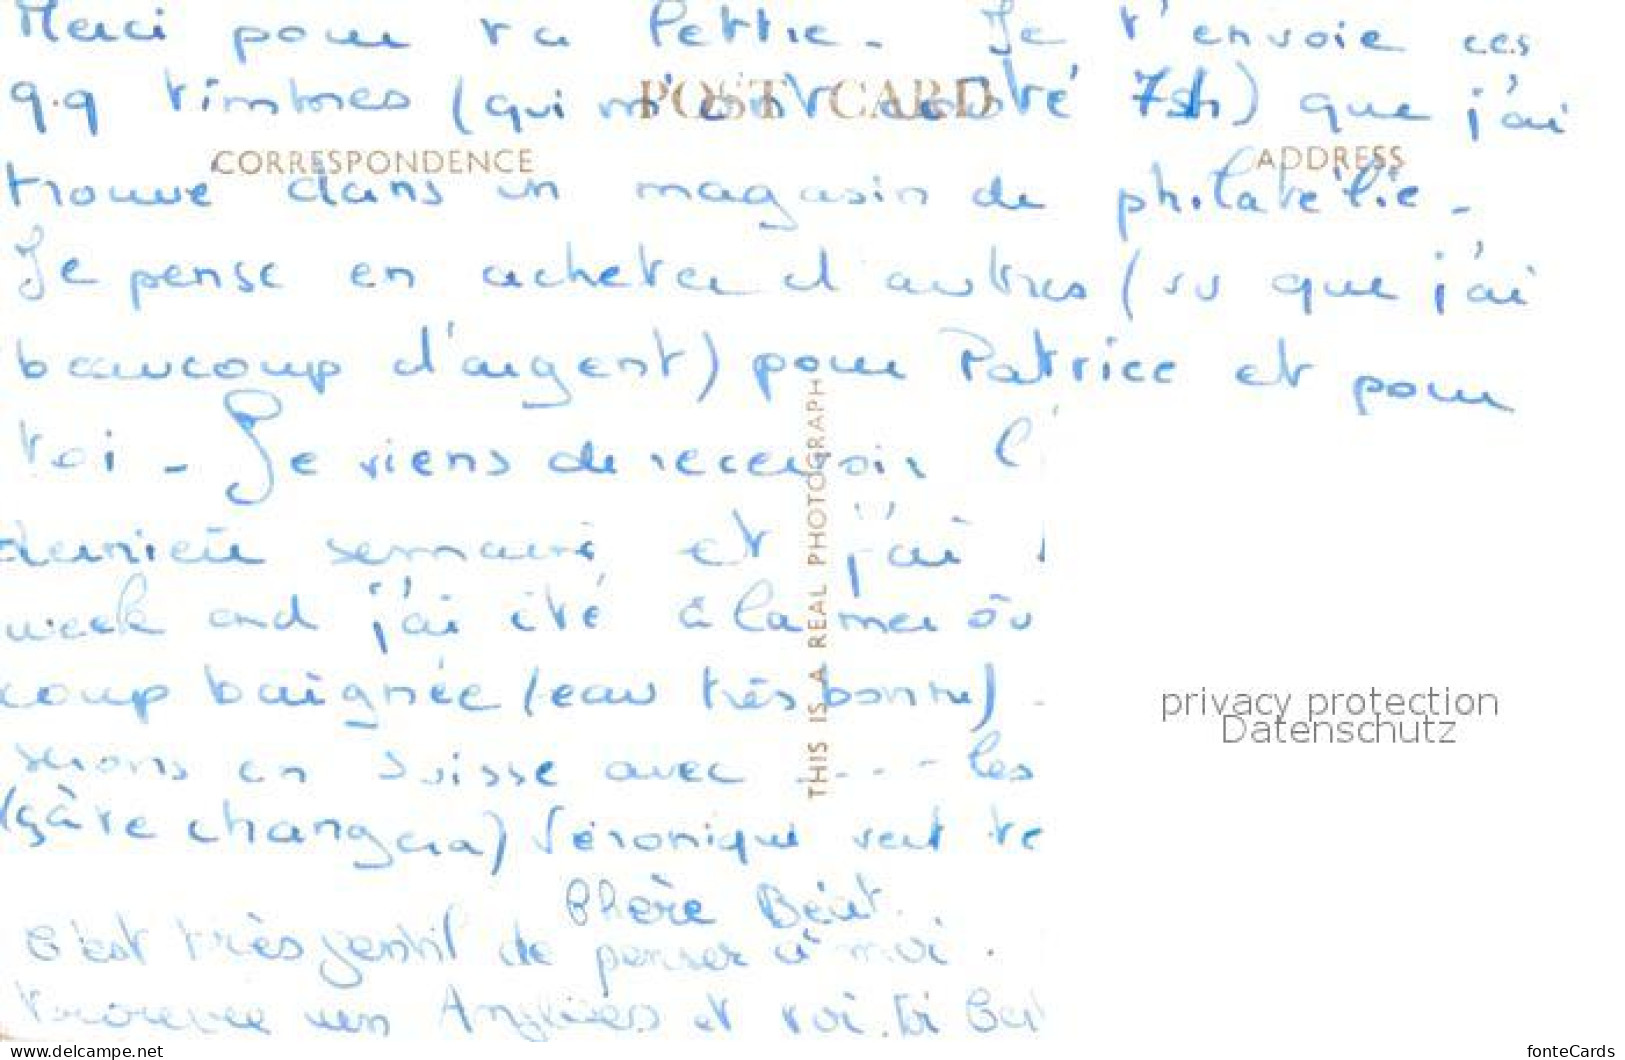 Merci pour ta lettre - Je t'envoie ces
q.q timbres (qui m'ont couté 7sh) que j'ai
POST CARD
CORRESPONDENCE
ADDRESS
trouvé dans un magasin de philatélie -
Je pense en acheter d'autres (vu que j'ai
beaucoup d'argent) pour Patrice et pour
toi - Je viens de recevoir l'
THIS IS A REAL PHOTOGRAPH
dernière semaine et j'ai
week end j'ai été à la mer où
coup baignée (eau très bonne) -
serons en Suisse avec ---- les
(gâre changera) Véronique veut te
privacy protection
Datenschutz
Chère Béat.
C'est très gentil de penser à moi.
un et toi.
www.delcampe.net
fonteCards